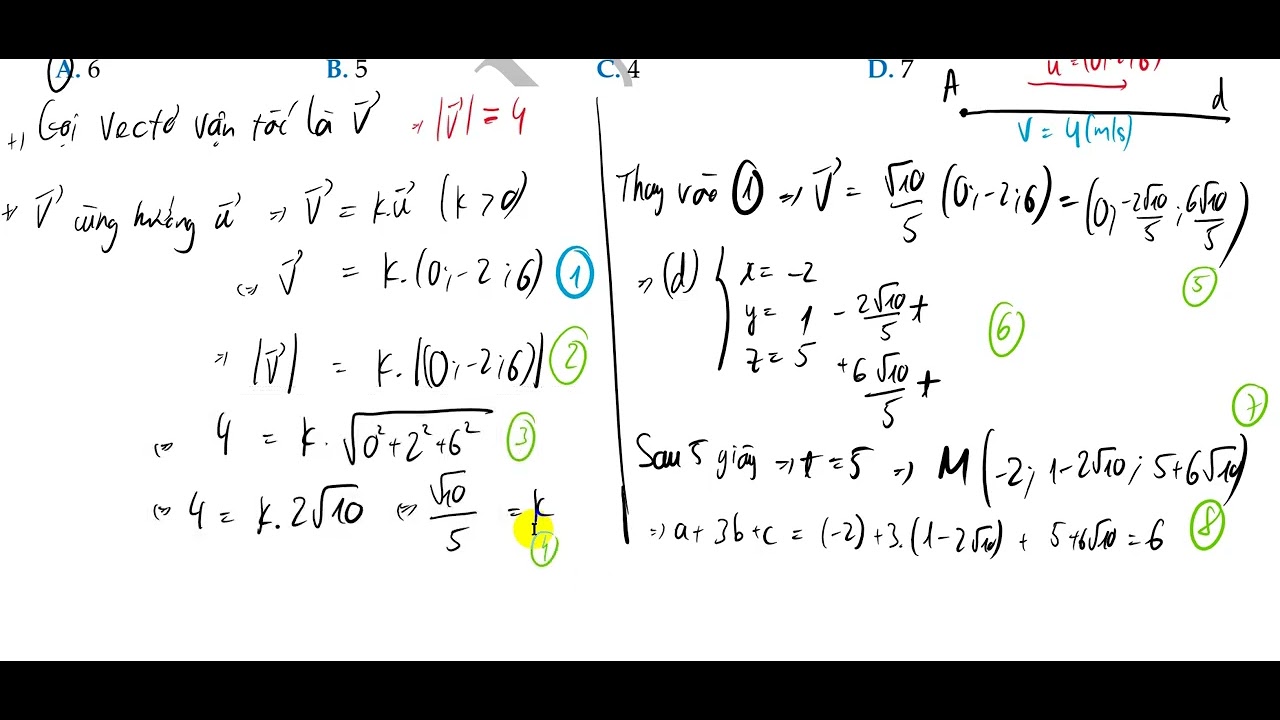 A. 6 B. 5 C. 4 D. 7
+) Gọi Vectơ vận tốc là V⃗ ⇒ |V⃗| = 4
+) V⃗ cùng hướng u⃗ ⇒ V⃗ = k.u⃗ (k > 0)
⇔ V⃗ = k.(0; -2; 6) ①
⇒ |V⃗| = k.|(0; -2; 6)| ②
⇔ 4 = k.√(0²+2²+6²) ③
⇔ 4 = k.2√10 ⇔ √10/5 = k ④
A u⃗ = (0; -2; 6) d
V = 4(m/s)
Thay vào ① ⇒ V⃗ = √10/5 (0; -2; 6) = (0; -2√10/5; 6√10/5) ⑤
⇒ (d) { x = -2
y = 1 - 2√10/5 t
z = 5 + 6√10/5 t ⑥
Sau 5 giây ⇒ t = 5 ⇒ M(-2; 1-2√10; 5+6√10) ⑦
⇒ a + 3b + c = (-2) + 3.(1-2√10) + 5+6√10 = 6 ⑧